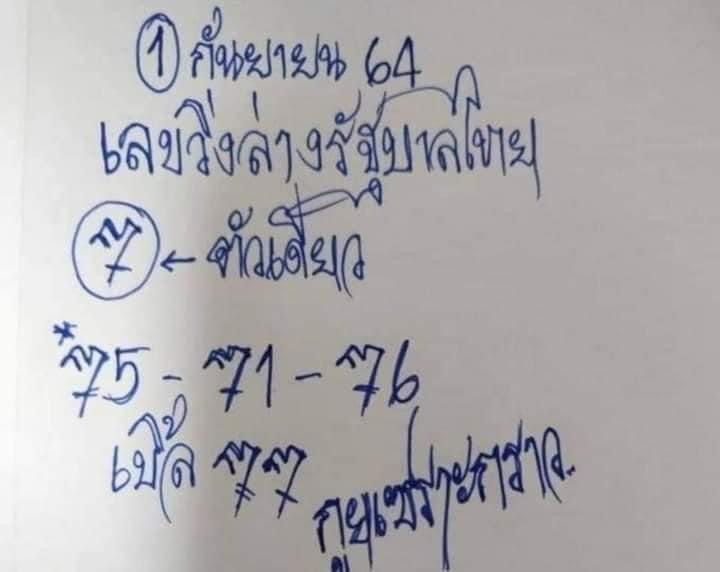 1 กันยายน 64
เลขวิ่งล่างรัฐบาลไทย
7 ← ตัวเดียว
*75 - 71 - 76
เบิ้ล 77